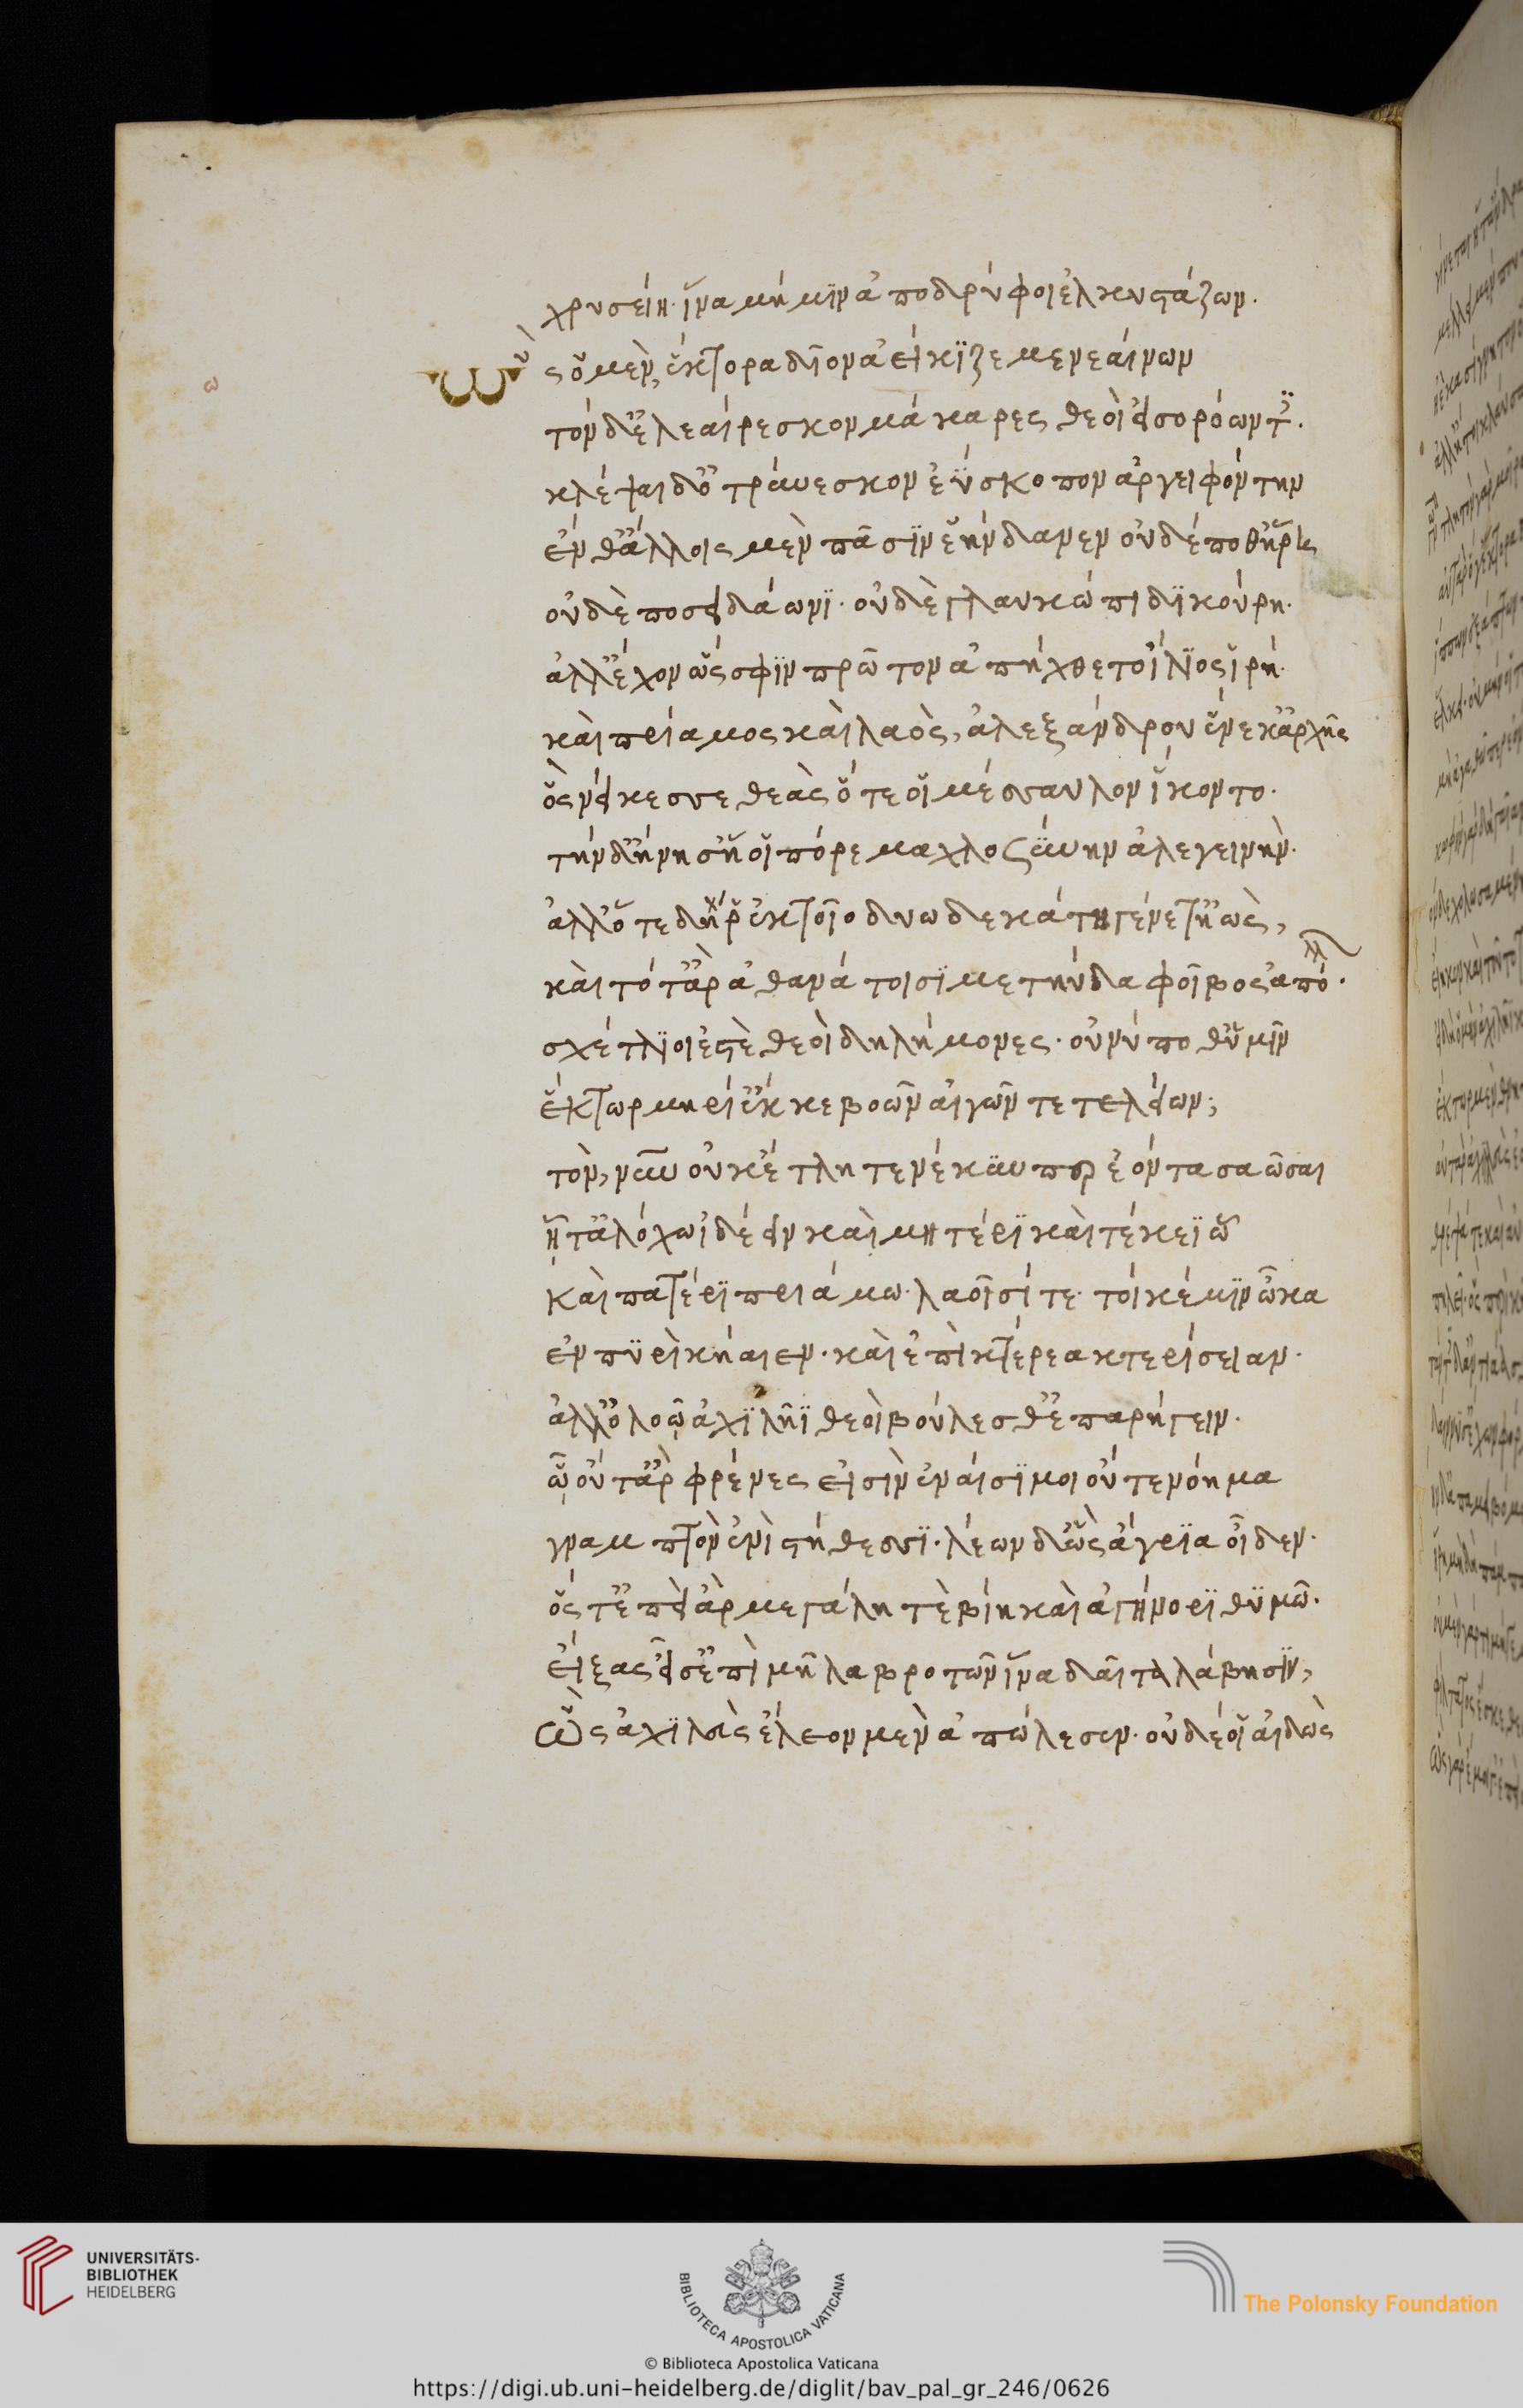 χρυσείη· ἵνα μή μιν ἀποδρύφοι ἑλκυστάζων.
ὣς ὃ μὲν, ἕκτορα δῖον ἀείκιζε μενεαίνων
τὸν δ' ἐλεαίρεσκον μάκαρες θεοὶ εἰσορόωντες.
κλέψαι δ' ὀτρύνεσκον ἐΰσκοπον ἀργειφόντην
ἔνθ' ἄλλοις μὲν πᾶσιν ἑήνδανεν οὐδέποθ' ἥρῃ
οὐδὲ ποσειδάωνι· οὐδὲ γλαυκώπιδι κούρη·
ἀλλ' ἔχον ὥς σφιν πρῶτον ἀπήχθετο ἴλιος ἱρή·
καὶ πρίαμος καὶ λαὸς, ἀλεξάνδρου ἕνεκ' ἀρχῆς
ὃς νείκεσσε θεὰς ὅτε οἱ μέσσαυλον ἵκοντο.
τὴν δ' ᾔνησ' ἥ οἱ πόρε μαχλοσύνην ἀλεγεινὴν.
ἀλλ' ὅτε δή ῥ' ἐκ τοῖο δυωδεκάτη γένετ' ἠὼς,
καὶ τότ' ἂρ ἀθανάτοισι μετηύδα φοῖβος ἀπόλλων.
σχέτλιοι ἐστὲ θεοὶ δηλήμονες· οὔ νύ ποθ' ὑμῖν
ἕκτωρ μηρί' ἔκηε βοῶν αἰγῶν τε τελείων;
τὸν, νῦν οὐκ ἔτλητε νέκυν περ ἐόντα σαῶσαι
ᾗ τ' ἀλόχω ἰδέειν καὶ μητέρι καὶ τέκεϊ ᾧ
καὶ πατέρι πριάμω· λαοῖσί τε· τοί κέ μιν ὦκα
ἐν πυρὶ κήαιεν· καὶ ἐπὶ κτέρεα κτερίσειαν·
ἀλλ' ὀλοῷ ἀχιλῆϊ θεοὶ βούλεσθ' ἐπαρήγειν.
ᾧ οὔτ' ἂρ φρένες εἰσὶν ἐναίσιμοι οὔτε νόημα
γναμπτὸν ἐνὶ στήθεσσι· λέων δ' ὣς ἄγρια οἶδεν·
ὅς τ' ἐπεὶ ἂρ μεγάλη τὲ βίη καὶ ἀγήνορι θυμῶ·
εἴξας εἶσ' ἐπὶ μῆλα βροτῶν ἵνα δαῖτα λάβησιν,
ὣς ἀχιλεὺς ἔλεον μὲν ἀπώλεσεν· οὐδέ οἱ αἰδὼς
ω
UNIVERSITÄTS-
BIBLIOTHEK
HEIDELBERG
BIBLIOTECA APOSTOLICA VATICANA
The Polonsky Foundation
© Biblioteca Apostolica Vaticana
https://digi.ub.uni-heidelberg.de/diglit/bav_pal_gr_246/0626